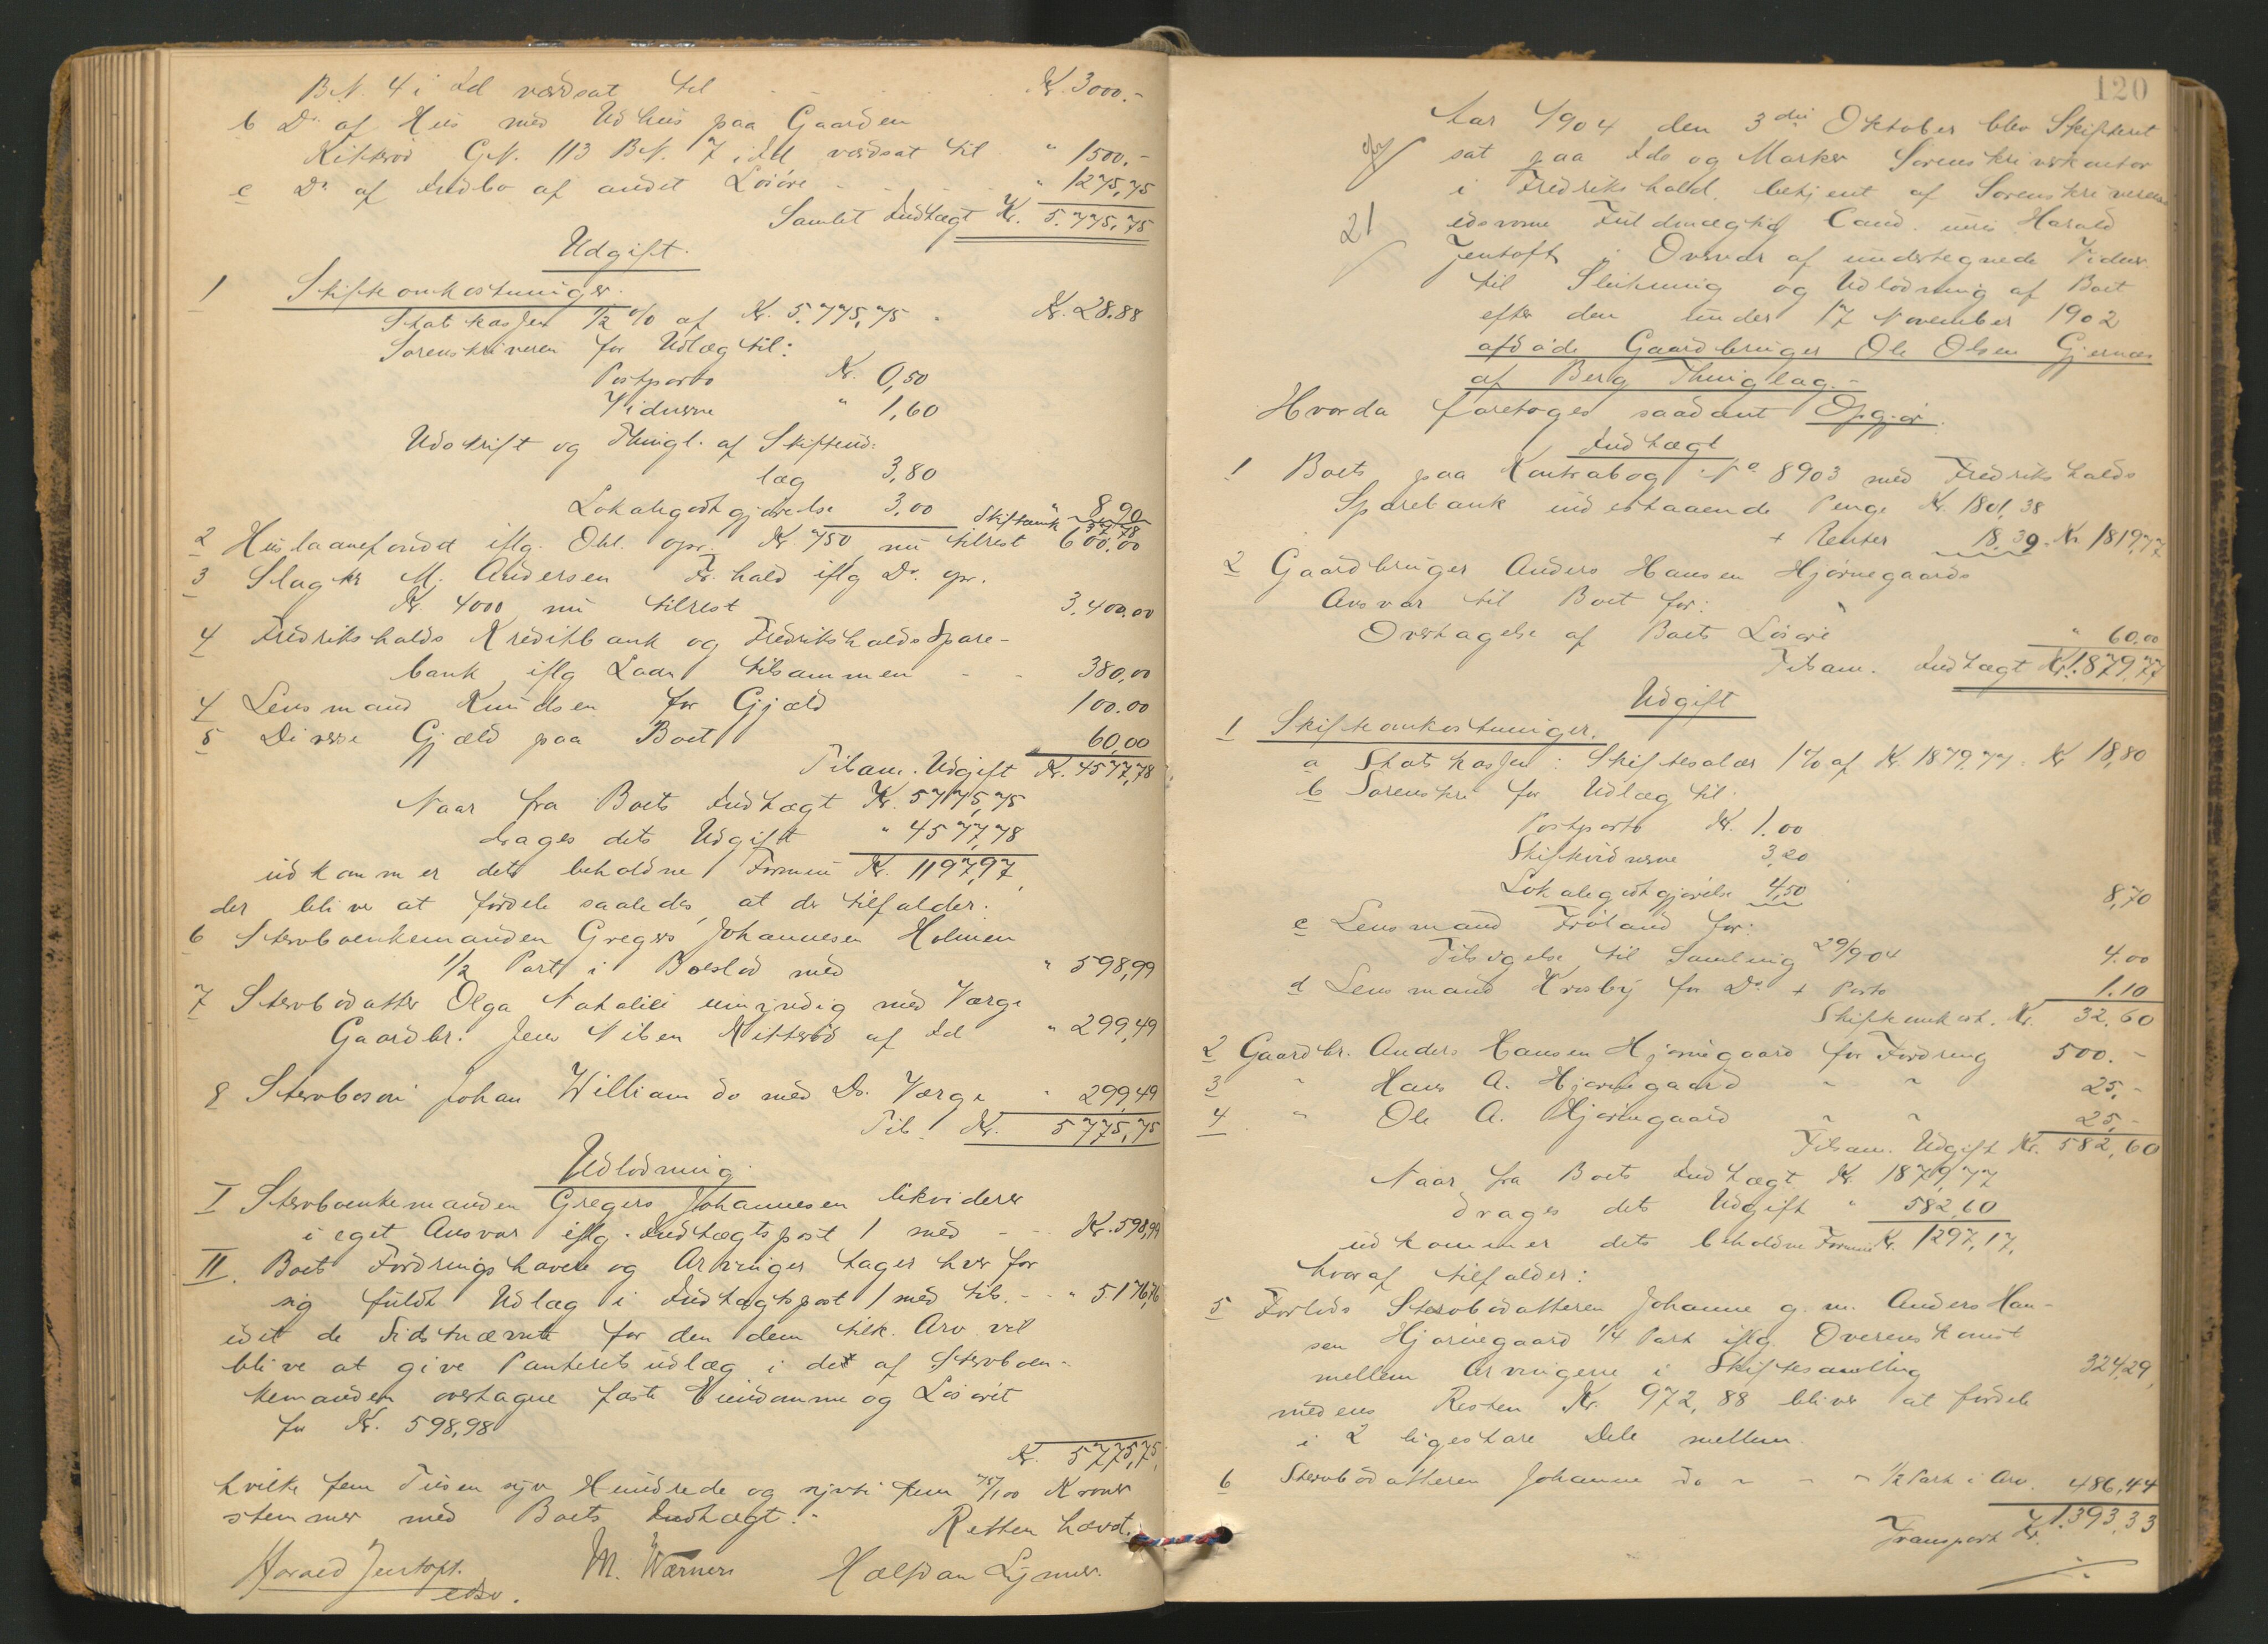 B.N. 4 i Id værdsat til Kr. 3000.-
b Do af Hus med Udhus paa Gaarden
Kitterød G.N. 113 B.N. 7 i Id værdsat til " 1500.-
c Do af Indbo af andet Løsøre " 1275,75
Samlet Indtægt Kr. 5.775,75
Udgift.
1 Skifteomkostninger.
Statskassen 1/2 % af Kr. 5.775,75 Kr. 28.88
Sorenskriveren for Udlæg til:
Postporto Kr. 0,50
Vidnerne " 1,60
Udskrift og Thingl. af Skifteud:
læg 3,80
Lokalegodtgjørelse 3,00 " 8,90
Skifteomk 37,78
2 Huslaanefondet iflg. Obl. opr. Kr. 750 nu tilrest 600,00
3 Slagter M. Andersen Fr.hald iflg Do. opr.
Kr. 4000 nu tilrest 3,400,00
4 Fredrikshalds Kreditbank og Fredrikshalds Spare-
bank iflg Laan tilsammen - - 380,00
4 Lensmand Knudsen for Gjæld 100.00
5 Diverse Gjæld paa Boet 60,00
Tilsam. Udgift Kr. 4577,78
Naar fra Boets Indtægt Kr. 5775,75
drages dets Udgift " 4577,78
udkommer dets beholdne Formue Kr. 1197,97,
der bliver at fordele saaledes, at der tilfalder:
6 Stervboenkemanden Gregers Johannesen Holmen
1/2 Part i Boeslod med " 598,99
7 Stervbodatter Olga Nathalie umyndig med Værge
Gaardbr. Jens Nilsen Kitterød af Id " 299,49
8 Stervboson Johan William do med Do. Værge " 299,49
Tils. Kr. 5775,75
Udlodning.
I Stervboenkemanden Gregers Johannesen likviderer
i eget Ansvar iflg. Indtægtspost 1 med - - Kr. 598,99
II. Boets Fordringshavere og Arvinger tager hver for
sig fuldt Udlæg i Indtægtspost 1 med tils. - - " 5176,76
idet de Sidstnævnte for den dem tilk. Arv vil
blive at give Panteretsudlæg i det af Stervboen-
kemanden overtagne faste Eiendomme og Løsøret
for Kr. 598,98
Kr. 5775,75,
hvilke fem Tusen syv Hundrede og sytti fem 75/100 Kroner
stemmer med Boets Indtægt.-
Retten hævet.
Harald Jentoft. M. Wærners Halfdan Lymer.
edsv.
120
Aar 1904 den 3die Oktober blev Skifteret
sat paa Idd og Marker Sorenskriverkontor
i Fredrikshald, betjent af Sorenskriverens
21
edsvorne Fuldmægtig Cand. juris Harald
Jentoft i Overvær af undertegnede Vidner
til Slutning og Udlodning af Boet
efter den under 17 November 1902
afdøde Gaardbruger Ole Olsen Gjernæs
af Berg Thinglag.-
Hvorda foretoges saadant Opgjør.
Indtægt
1 Boets paa Kontrabog No 8903 med Fredrikshalds
Sparebank indestaaende Penge Kr. 1801,38
+ Renter 18.39 Kr. 1819,77
2 Gaardbruger Anders Hansen Hjørnegaards
Ansvar til Boet for:
Overtagelse af Boets Løsøre " 60.00
Tilsam. Indtægt Kr. 1.879,77
Udgift
1 Skifteomkostninger.
a Statskassen: Skiftesalær 1% af Kr. 1879,77 Kr. 18,80
b Sorenskr for Udlæg til
Postporto Kr. 1.00
Skiftevidnerne 3,20
Lokalegodtgjørelse 4,50 8,70
c Lensmand Frøland for:
Tilsigelse til Samling 29/9 04 4.00
d Lensmand Krosby for Do + Porto 1.10
Skifteomkost. Kr. 32,60
2 Gaardbr. Anders Hansen Hjørnegaard for Fordring 500.-
3 " Hans A. Hjørnegaard " " 25,-
4 " Ole A. Hjørnegaard " " 25,-
Tilsam. Udgift Kr. 582,60
Naar fra Boets Indtægt Kr. 1879,77
drages dets Udgift " 582,60
udkommer dets beholdne Formue Kr. 1297,17,
hvoraf tilfalder:
5 Forlods Stervbodatteren Johanne g. m. Anders Han-
sen Hjørnegaard 1/4 Part iflg. Overenskomst
mellem Arvingerne i Skiftesamling 324,29,
medens Resten Kr. 972,88 bliver at fordele
i 2 ligestore Dele mellem
6 Stervbodatteren Johanne do " " " 1/2 Part i Arv. 486,44
Transport Kr. 1.393,33